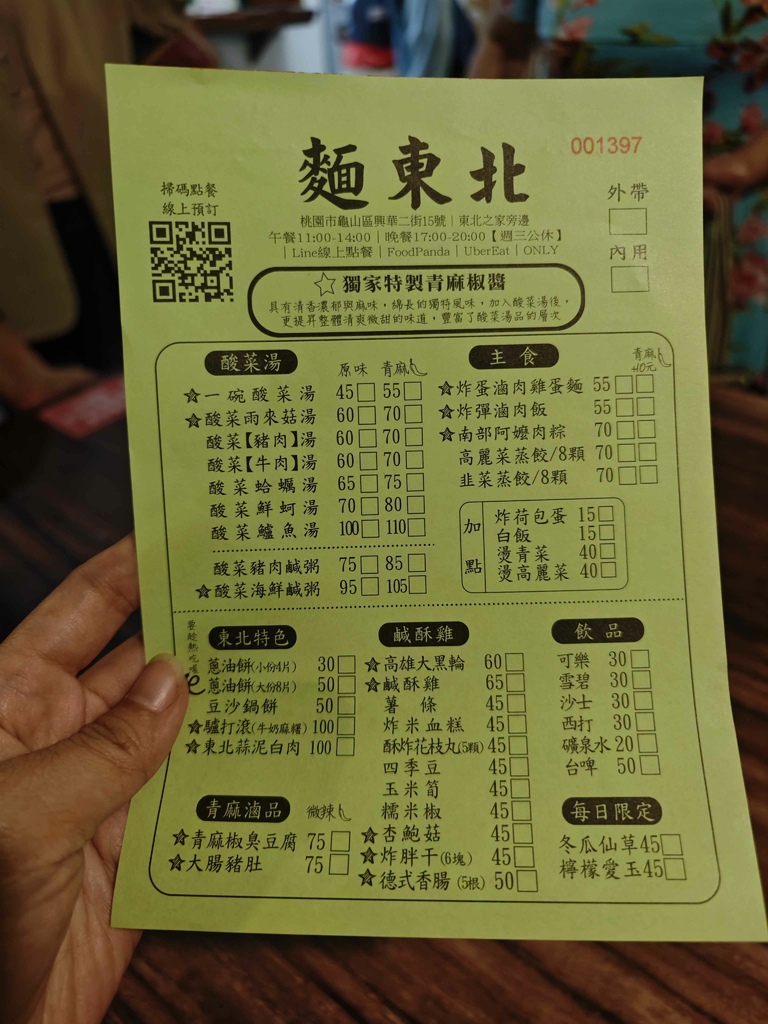 001397
麵東北
掃碼點餐
線上預訂
外帶
內用
桃園市龜山區興華二街15號｜東北之家旁邊
午餐11:00-14:00｜晚餐17:00-20:00【週三公休】
｜Line線上點餐｜FoodPanda｜UberEat｜ONLY
☆獨家特製青麻椒醬
具有清香濃郁與麻味，綿長的獨特風味，加入酸菜湯後，
更提昇整體清爽微甜的味道，豐富了酸菜湯品的層次
酸菜湯 原味 青麻
☆一碗酸菜湯 45□ 55□
☆酸菜雨來菇湯 60□ 70□
酸菜【豬肉】湯 60□ 70□
酸菜【牛肉】湯 60□ 70□
酸菜蛤蠣湯 65□ 75□
酸菜鮮蚵湯 70□ 80□
酸菜鱸魚湯 100□ 110□
酸菜豬肉鹹粥 75□ 85□
☆酸菜海鮮鹹粥 95□ 105□
主食 青麻+10元
☆炸蛋滷肉雞蛋麵 55□□
☆炸彈滷肉飯 55□□
☆南部阿嬤肉粽 70□□
高麗菜蒸餃/8顆 70□□
韭菜蒸餃/8顆 70□□
加點
炸荷包蛋 15□
白飯 15□
燙青菜 40□
燙高麗菜 40□
東北特色
要趁熱吃喔
蔥油餅(小份4片) 30□
蔥油餅(大份8片) 50□
豆沙鍋餅 50□
☆驢打滾(牛奶麻糬) 100□
☆東北蒜泥白肉 100□
青麻滷品 微辣
☆青麻椒臭豆腐 75□
☆大腸豬肚 75□
鹹酥雞
☆高雄大黑輪 60□
☆鹹酥雞 65□
薯條 45□
炸米血糕 45□
酥炸花枝丸(5顆) 45□
四季豆 45□
玉米筍 45□
糯米椒 45□
☆杏鮑菇 45□
☆炸胖干(6塊) 45□
☆德式香腸(5根) 50□
飲品
可樂 30□
雪碧 30□
沙士 30□
西打 30□
礦泉水 20□
台啤 50□
每日限定
冬瓜仙草45□
檸檬愛玉45□